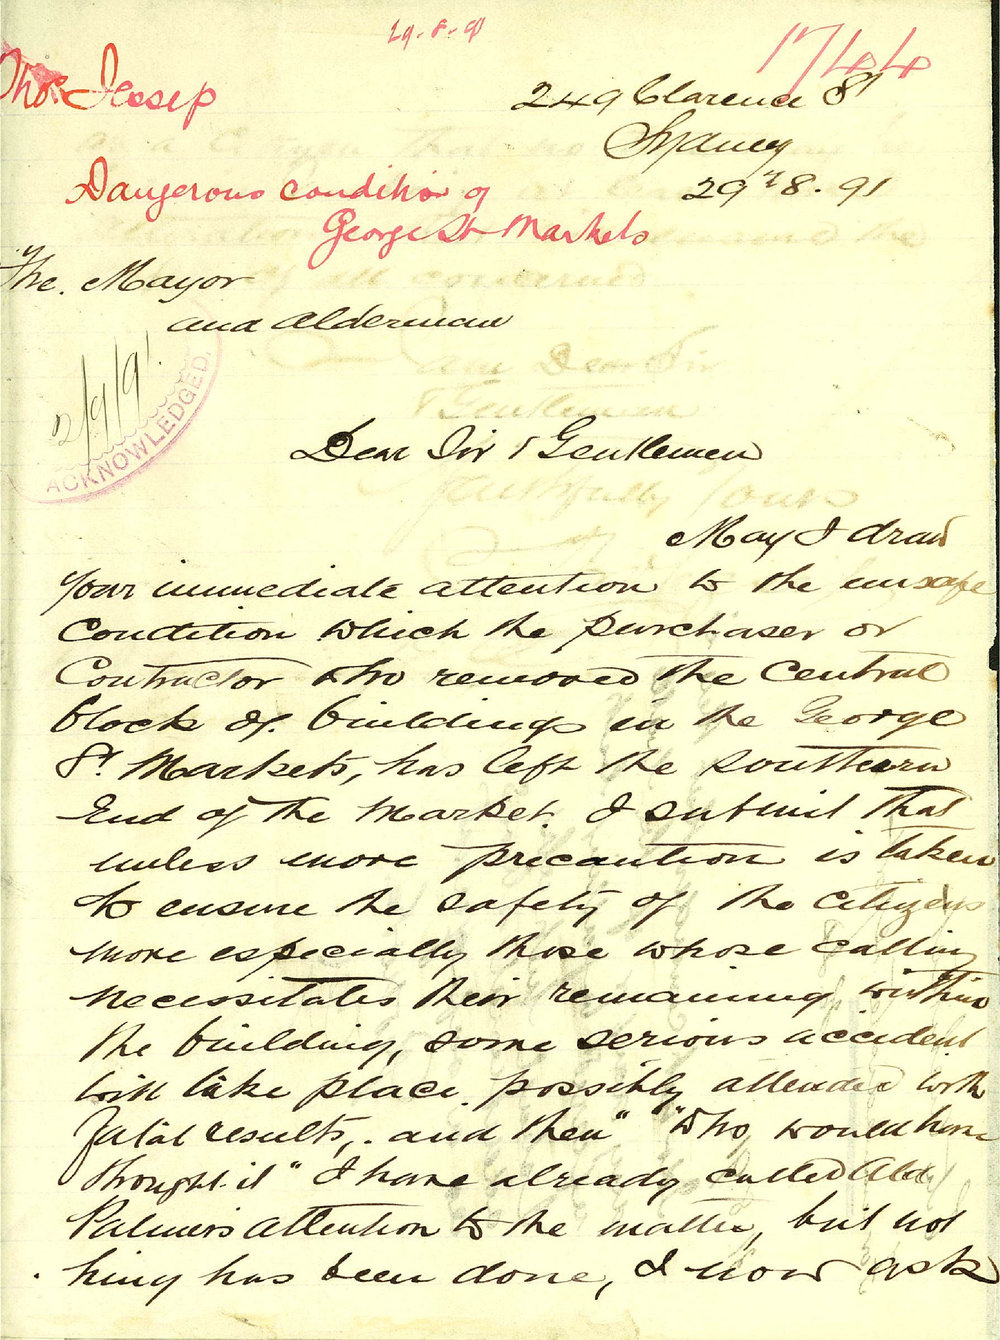 29-8-91
1744
Thos Jessep
249 Clarence St
Sydney
Dangerous condition of
George St Markets
29th 8. 91
The Mayor
and Alderman
2/9/91
ACKNOWLEDGED.
Dear Sir & Gentlemen
May I draw
your immediate attention to the unsafe
Condition which the purchaser or
Contractor who removed the Central
block of buildings in the George
St Markets, has left the Southern
End of the Market. I submit that
unless more precaution is taken
to ensure the safety of the citizens
more especially those whose calling
necessitates their remaining within
the building, some serious accident
will take place possibly attended with
fatal results, and then" "Who would have
thought it" I have already called Ald
Palmer's attention to the matter, but not
hing has been done, I now ask